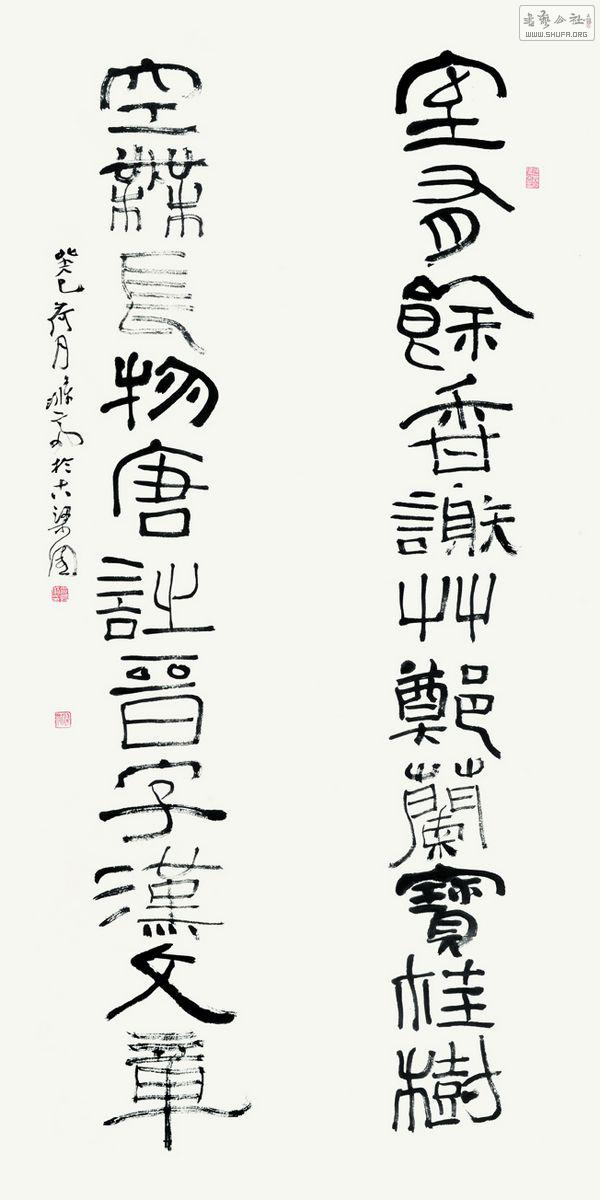 書藝公社
WWW.SHUFA.ORG
室有餘香謝艸鄭蘭寶桂樹
空無長物唐詩晉字漢文章
癸巳荷月於古梁園